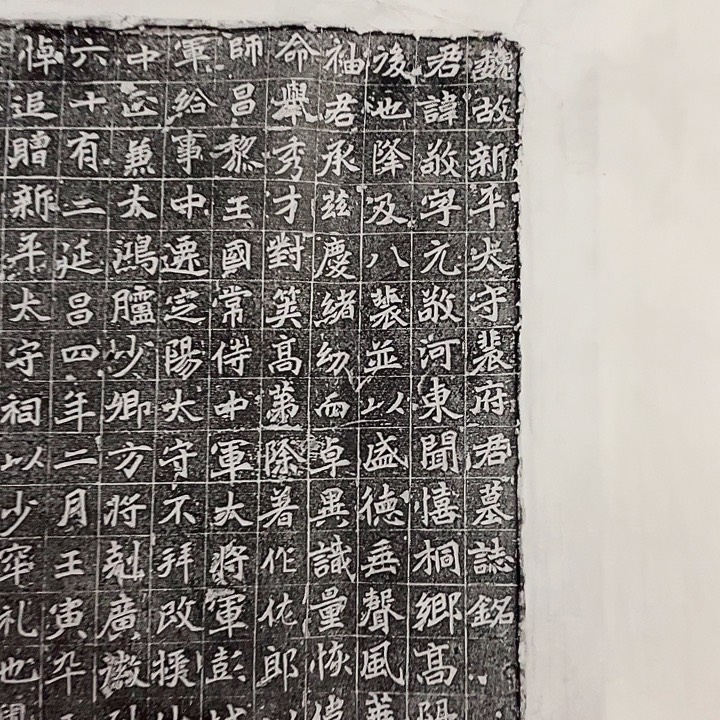 魏故新平太守裴府君墓誌銘
君諱敬字元敬河東聞憘桐鄉高陽
後也降及八裴並以盛德垂聲風
袖君承茲慶緒幼而卓異識量恢偉
命舉秀才對筞高第除著作佐郎以
師昌黎王國常侍中軍大將軍彭城
軍給事中遷定陽太守不拜改授
中正兼太鴻臚少卿方將剋廣徽
六十有二延昌四年二月壬寅卒
悼追贈新平太守祠以少窂礼也